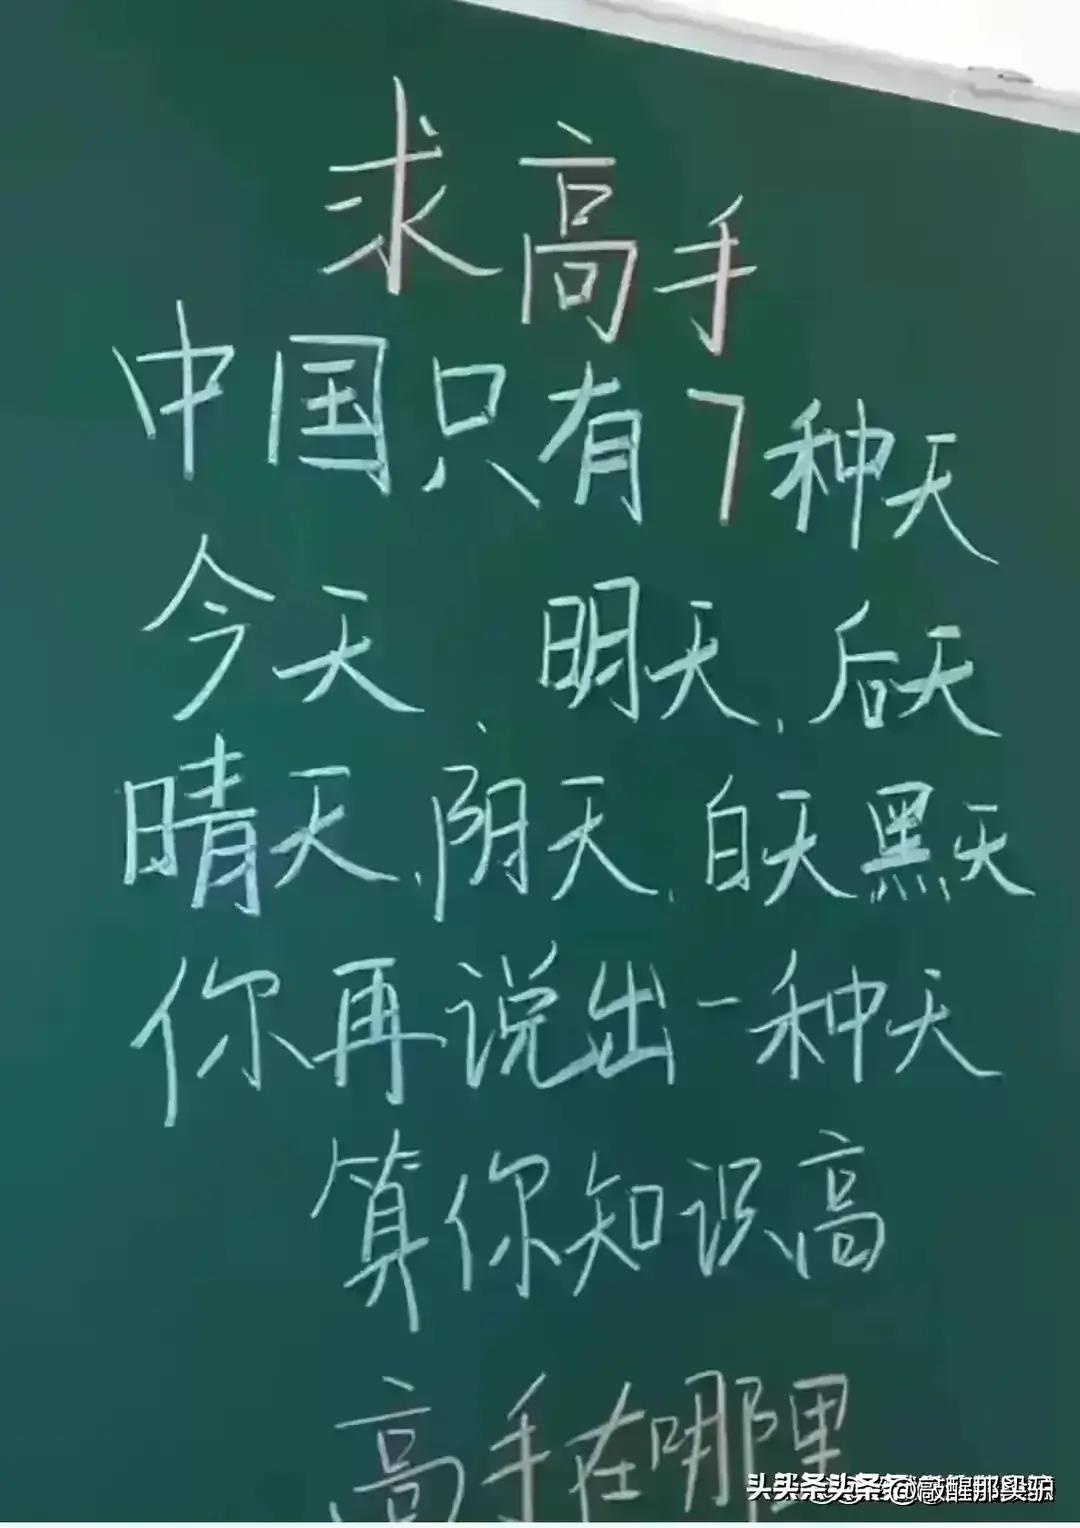 求高手
中国只有7种天
今天、明天、后天
晴天、阴天、白天黑天
你再说出一种天
算你知识高
高手在哪里
头条 @敲醒那段